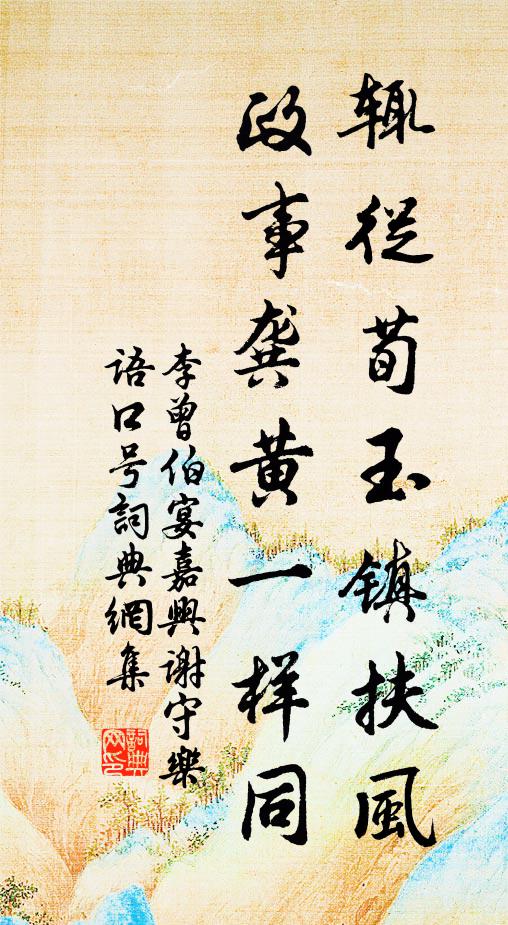 輙從荀玉镇扶風
政事龚黄一样同
李曾伯宴嘉興谢守樂
语口号詞典網集